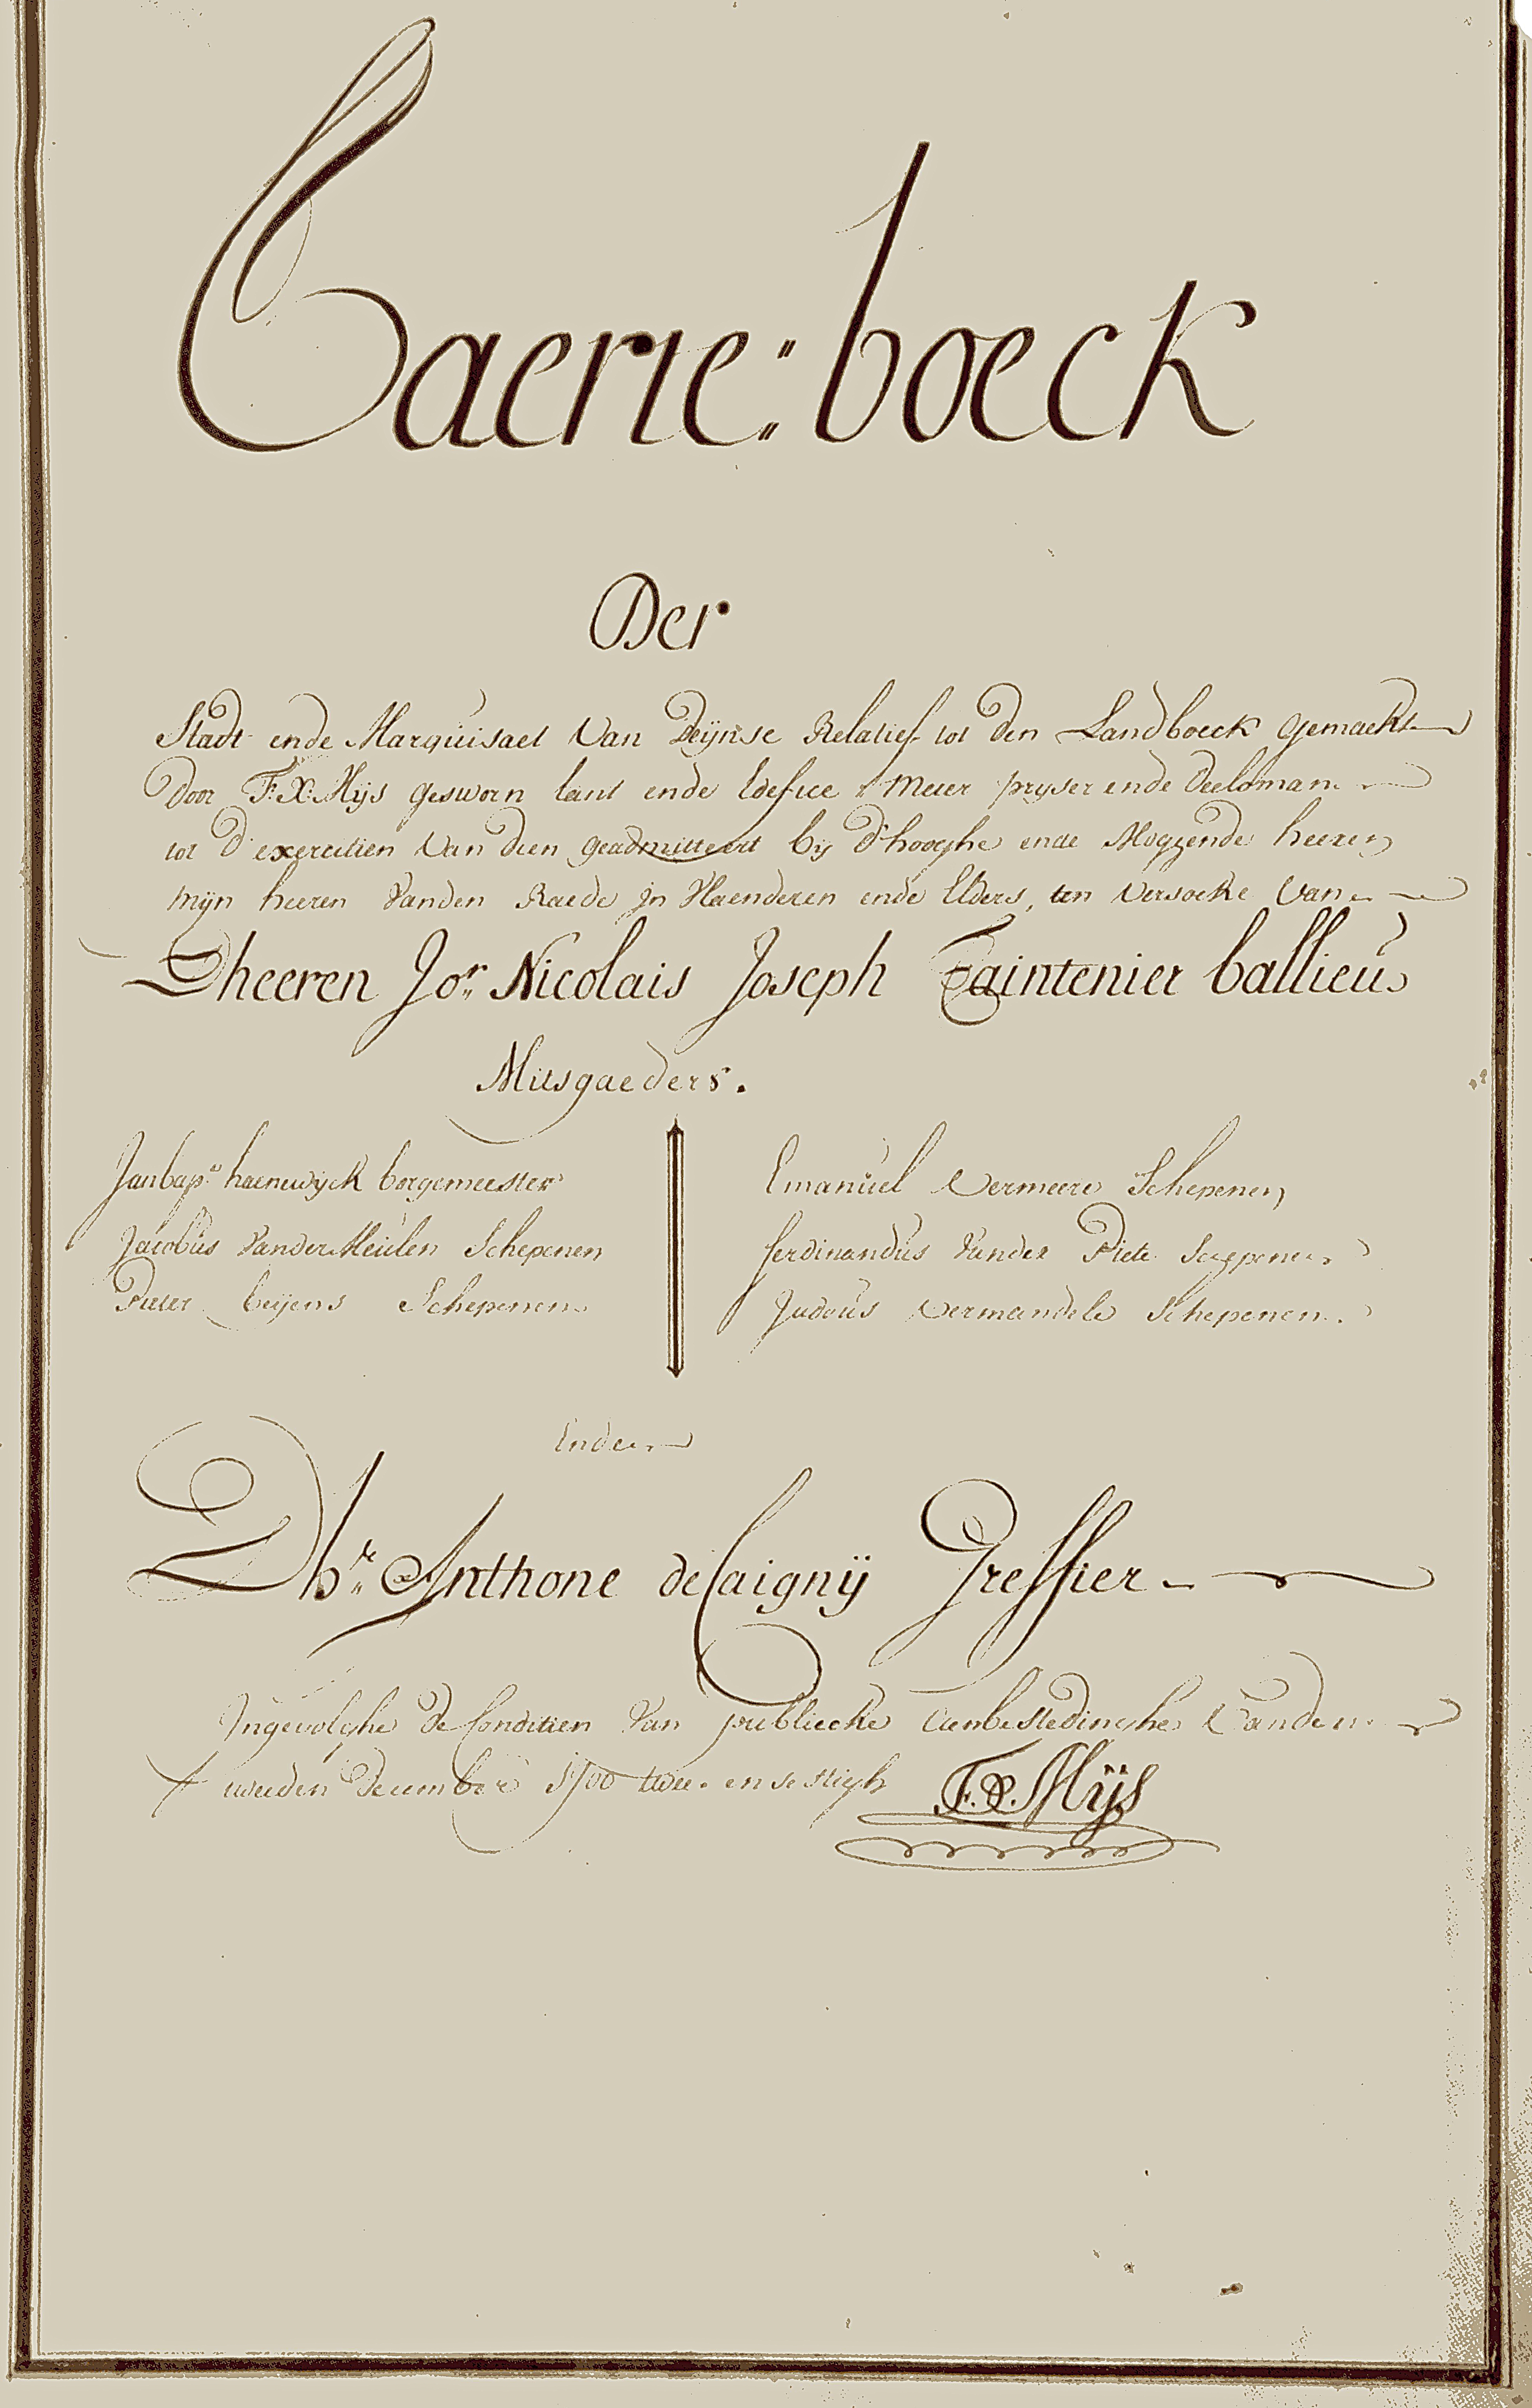 Caerte:boeck
Der
Stadt ende Marquisaet Van Deijnse Relatief tot den Landboeck gemaekt
door F:X:Mijs gesworn lant ende Edefice Meter pryser ende deelsman
tot d'exercitien Van dien geadmitteert bij d'hooghe ende Mogende heeren
mijn heeren Vanden Raede in Vlaenderen ende Elders, ten Versoeke Van
Dheeren Jor. Nicolais Joseph Taintenier ballieu
Mitsgaeders.
Janbapt haenewyck borgemeester
Jacobus Vander Meulen Schepenen
Pieter beijens Schepenen
Emanuel Vermeere Schepenen
ferdinandus Vander Piete Scepenen
Judocus Vermandele Schepenen.
Ende
Dhr. Anthone de Caignÿ Greffier
Ingevolghe de Conditien Van publiecke aenbestedinghe Vanden
tweeden december 1700 twee-en sestigh F.X. Mÿs